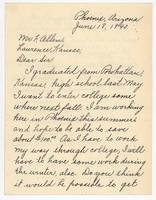 Phoenix, Arizona
June 18, 1940
Mr. F. Allen,
Lawrence, Kansas.
Dear Sir
I graduated from Powhattan,
Kansas high school last May.
I want to enter college some
where next fall. I am working
here in Phoenix this summer and
hope to be able to save
about $100.00. As I have to work
my way through college, I will
have to have some work during
the winter, also. Do you think
it would be possible to get